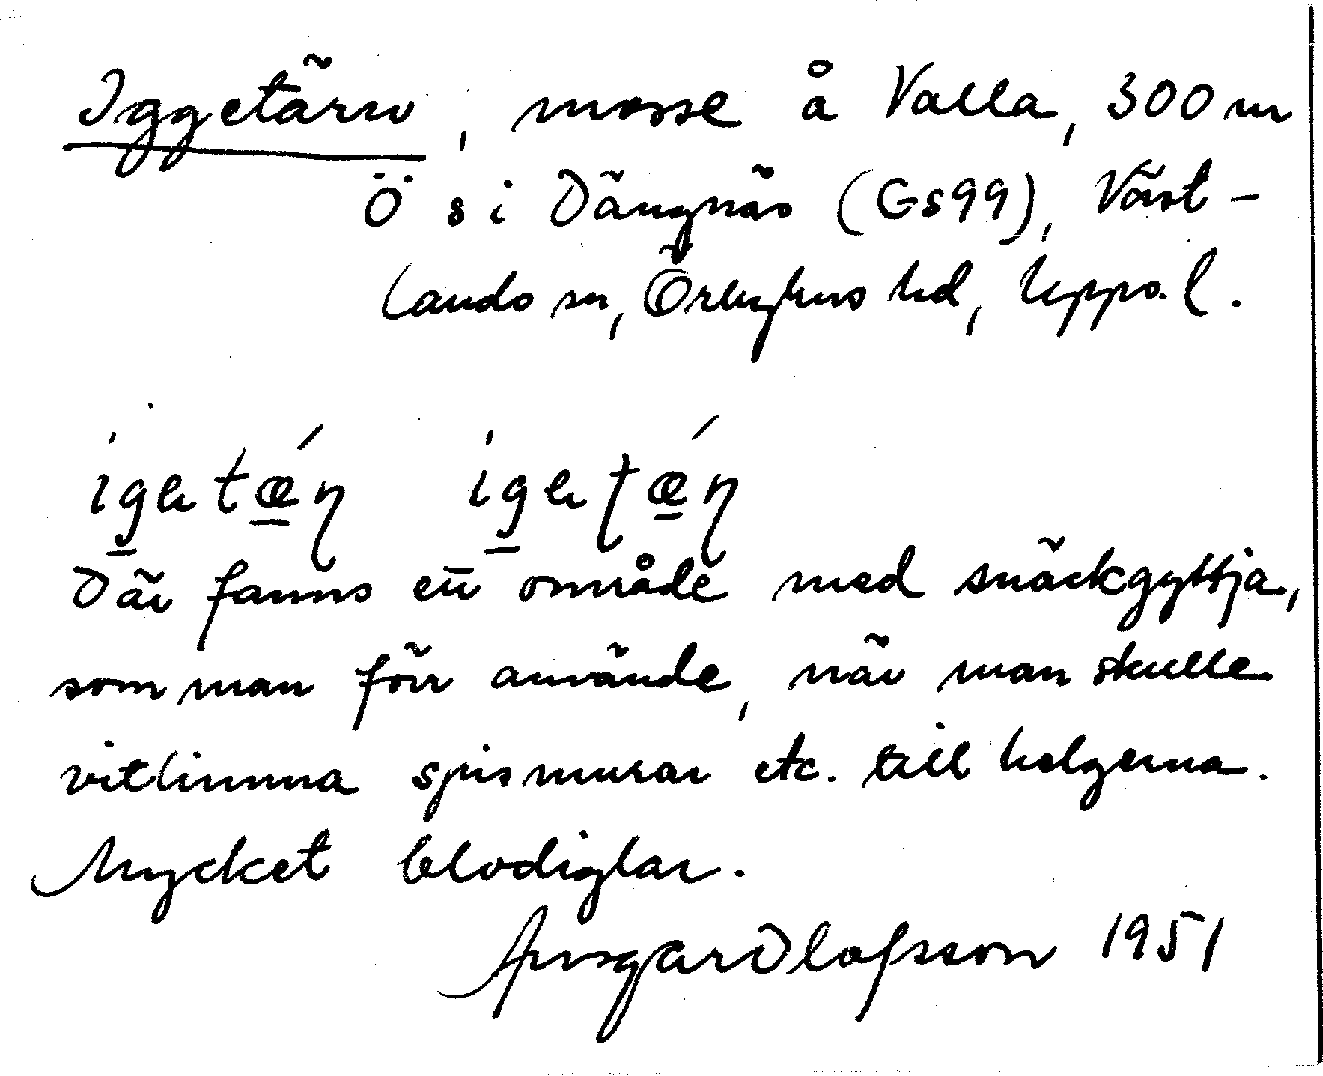 Iggetärn, mosse å Valla, 300 m
Ö s i Dängnäs (Gs99), Väst-
lands sn, Örbyhus hd, Upps. l.
Där fanns ett område med snäckgyttja,
som man förr använde, när man skulle
vitlimma spismurar etc. till helgerna.
Mycket blodiglar.
Ansgar Olofsson 1951